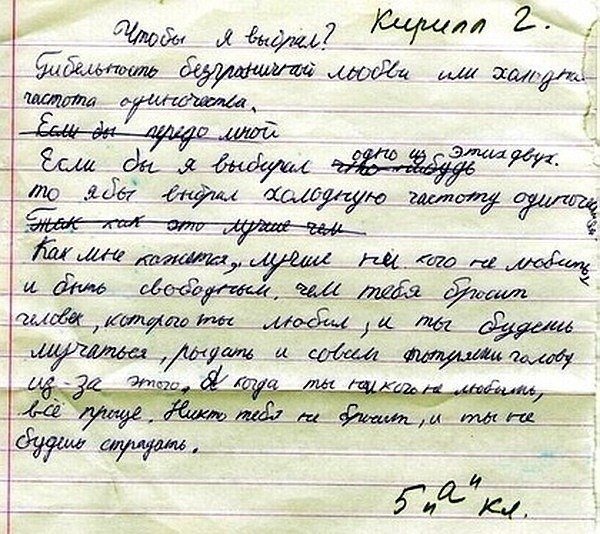 Кирилл Г.
Чтобы я выбрал?
Гибельность безграничной любви или холодная
частота одиночества.
Если бы передо мной
Если бы я выбирал что-нибудь одно из этих двух.
то я бы выбрал холодную частоту одиночества.
Так как это лучше чем
Как мне кажется, лучше ни кого не любить,
и быть свободным, чем тебя бросит
человек, которого ты любил, и ты будешь
мучаться, рыдать и совсем потеряеш голову
из-за этого. А когда ты никого не любить,
всё проще. Никто тебя не бросит, и ты не
будешь страдать.
5 "а" кл.